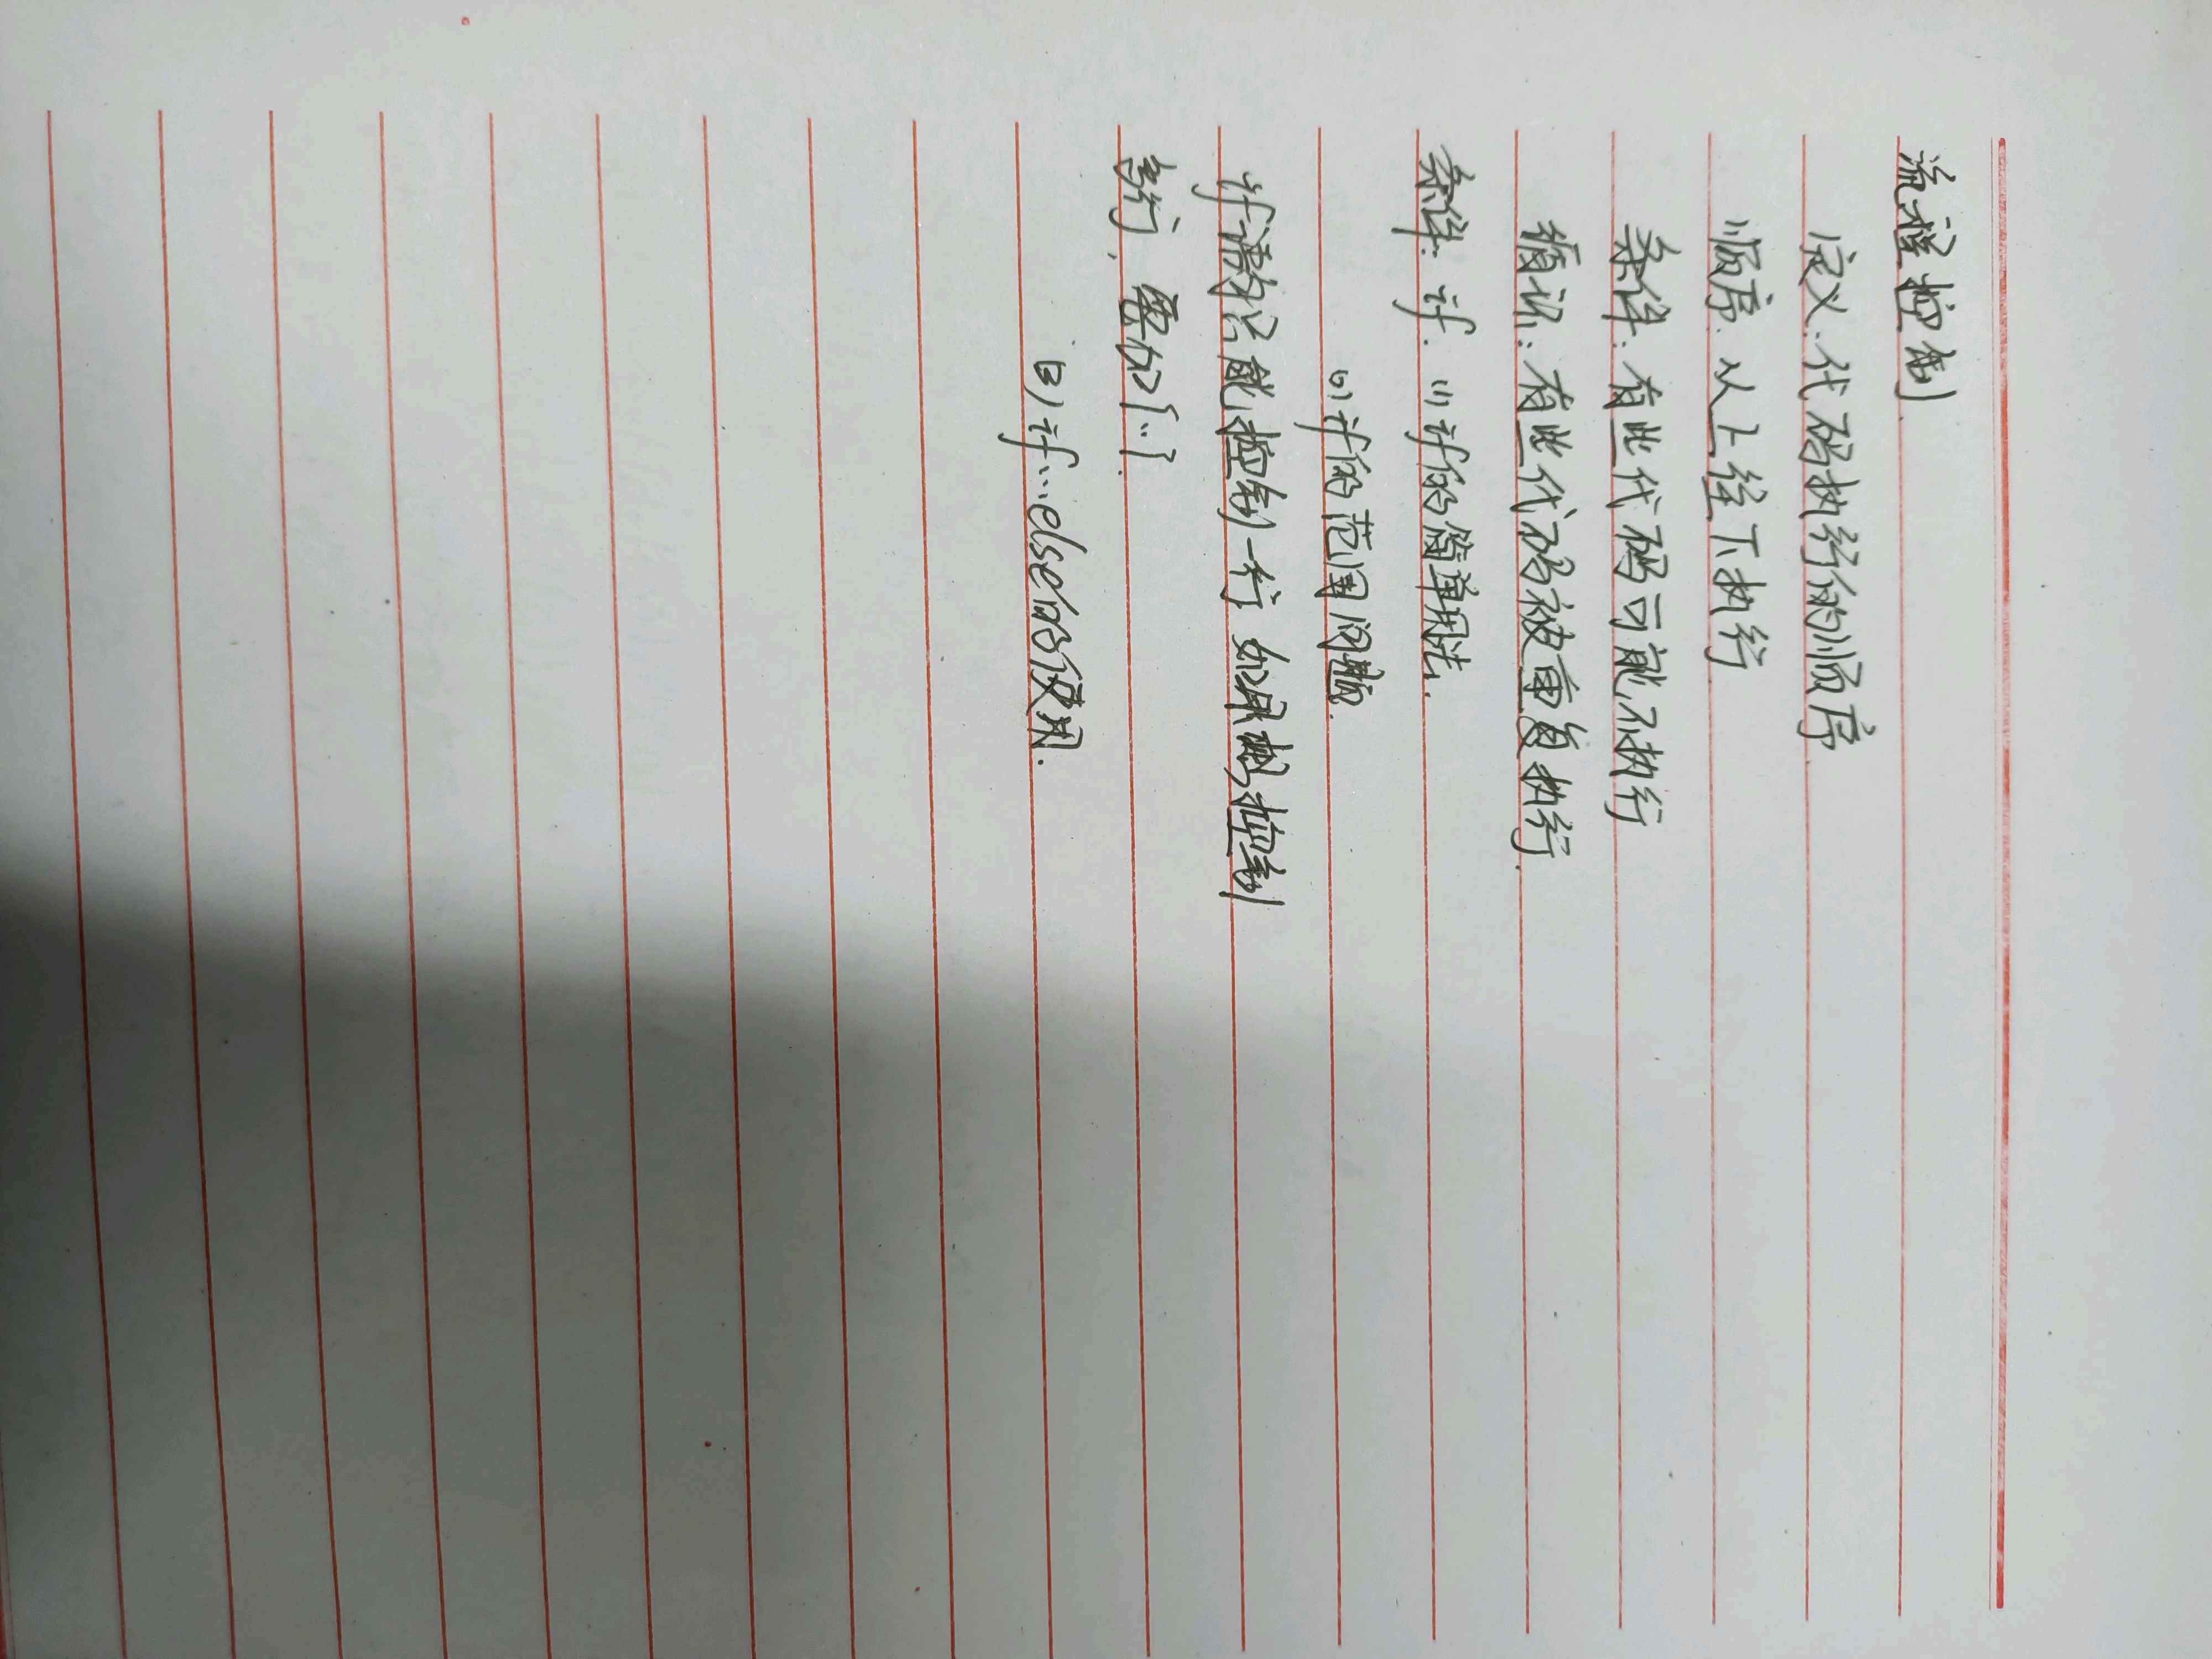 流程控制
定义:代码执行的顺序
顺序:从上往下执行
条件:有些代码可能不执行
循环:有些代码被重复执行
条件:if. (1) if的简单用法.
(2) if的范围问题.
if语句只能控制一行 如果想控制
多行,要加{..}.
(3) if...else的使用.